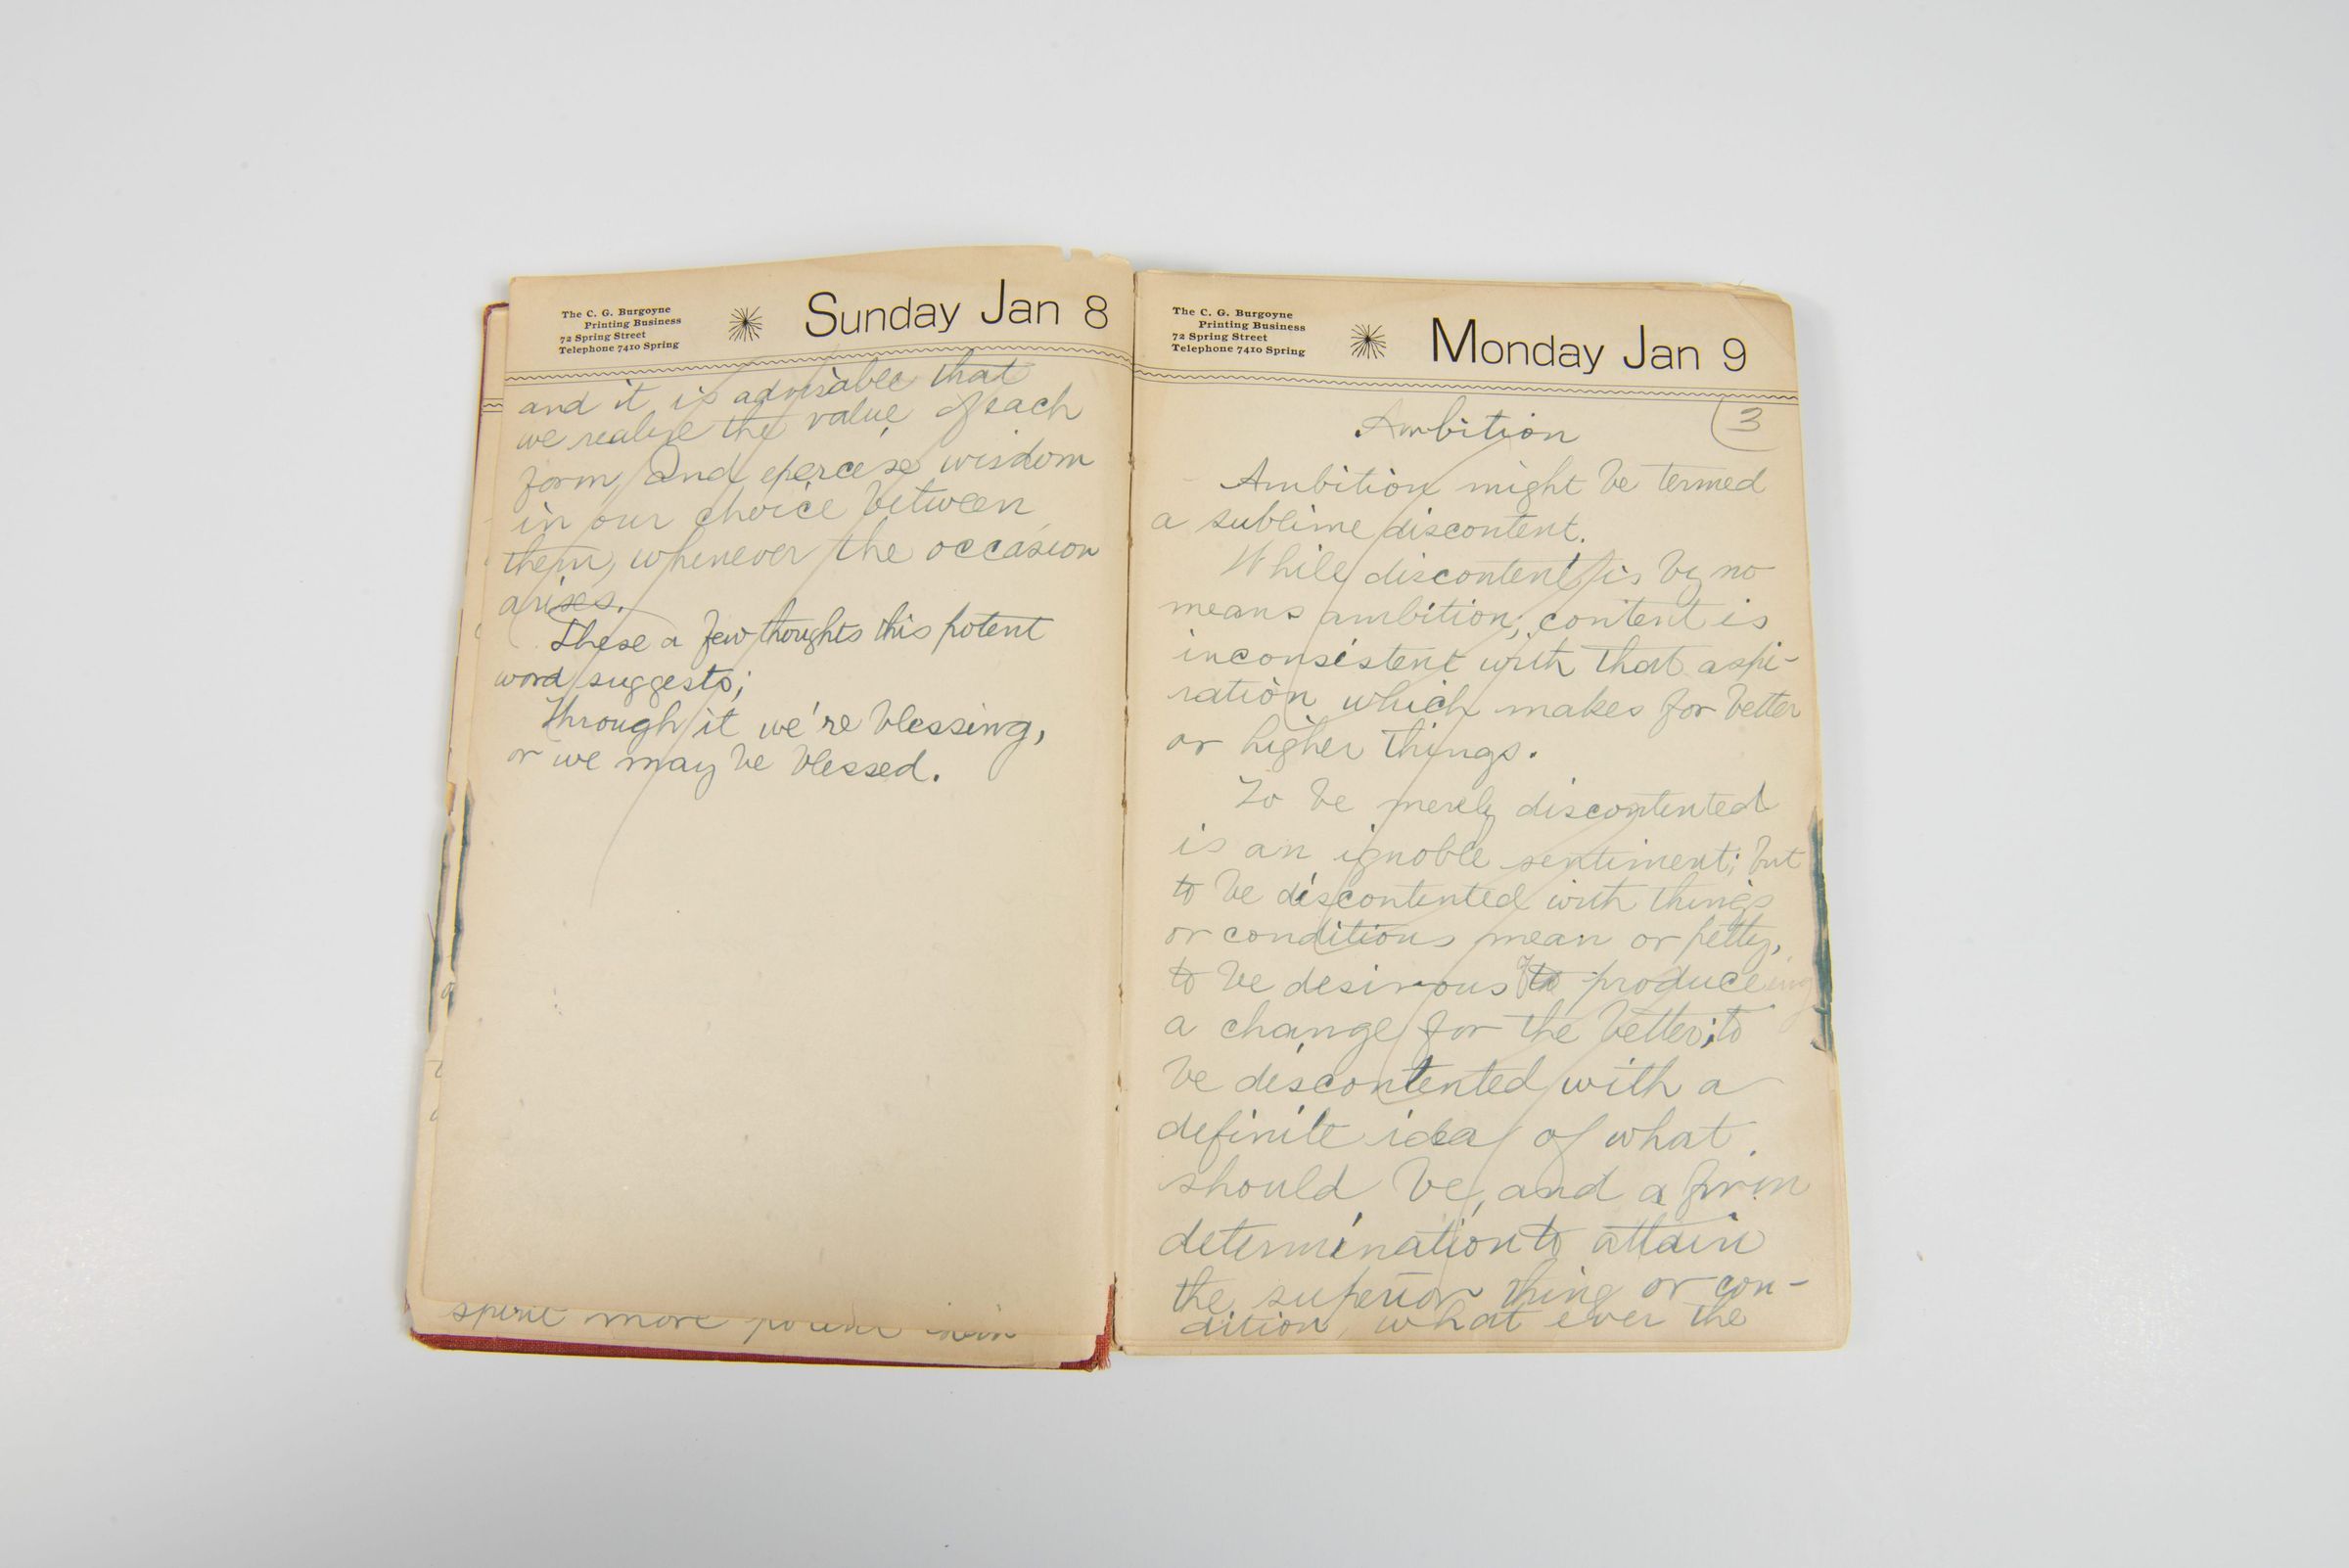 The C. G. Burgoyne
Printing Business
72 Spring Street
Telephone 7410 Spring
Sunday Jan 8
and it is advisable that
we realize the value of each
form, and exercise wisdom
in our choice between
them, whenever the occasion
arises.
These a few thoughts this potent
word suggests;
Through it we're blessing,
or we may be blessed.
spirit more potent than
The C. G. Burgoyne
Printing Business
72 Spring Street
Telephone 7410 Spring
Monday Jan 9
3
Ambition
Ambition might be termed
a sublime discontent.
While discontent is by no
means ambition, content is
inconsistent with that aspi-
ration which makes for better
or higher things.
To be merely discontented
is an ignoble sentiment; but
to be discontented with things
or conditions mean or petty,
to be desirous of to produceing
a change for the better; to
be discontented with a
definite idea of what
should be, and a firm
determination to attain
the superior thing or con-
dition, what ever the